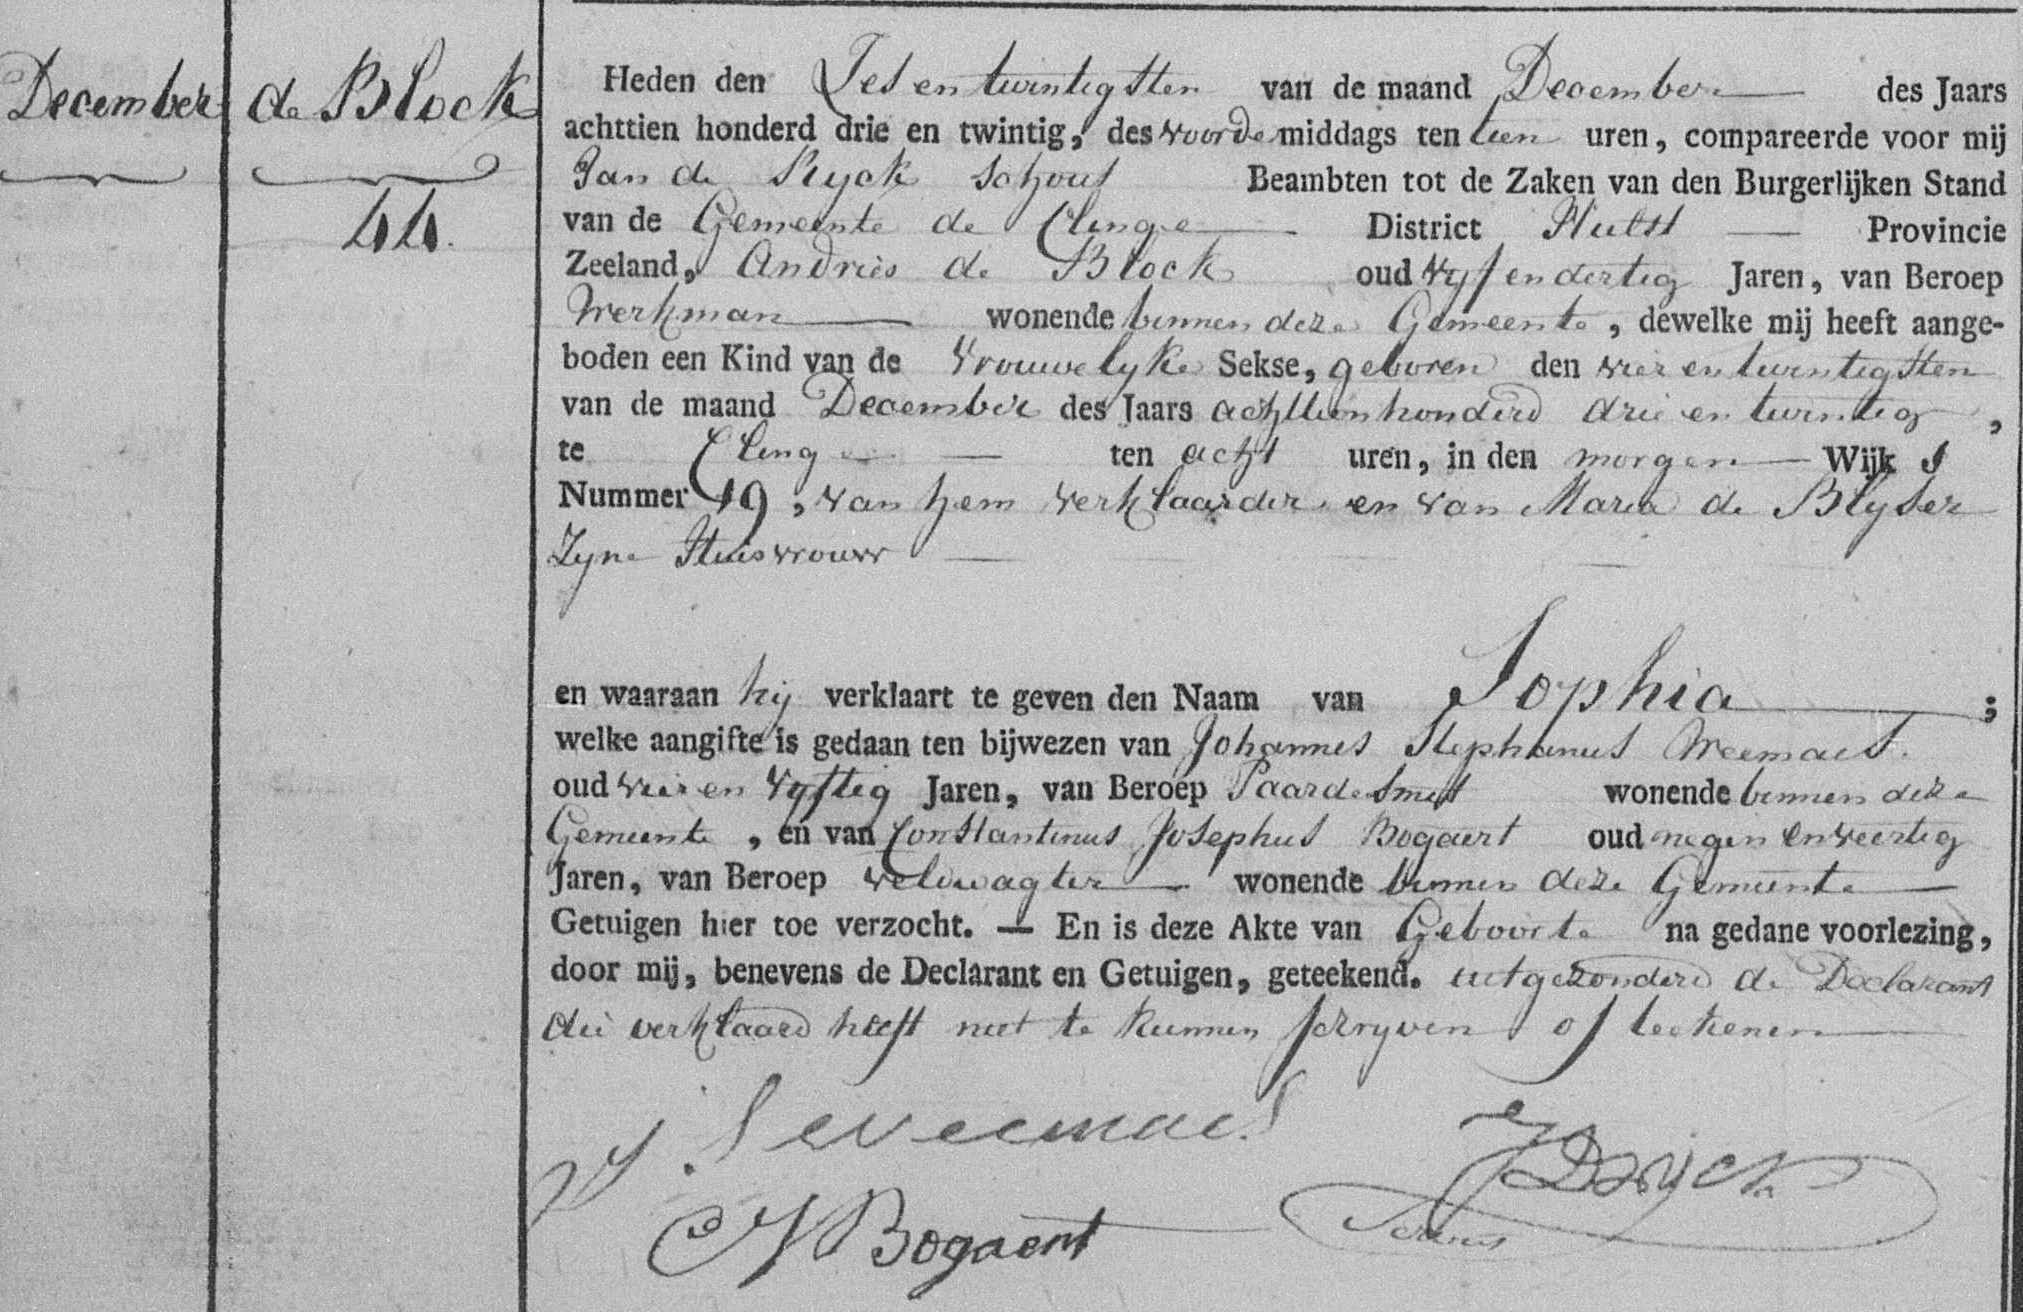 December
de Block
44.
Heden den Ses en twintigsten van de maand December des Jaars
achttien honderd drie en twintig, des voorde middags ten tien uren, compareerde voor mij
Jan de Ryck Schout Beambten tot de Zaken van den Burgerlijken Stand
van de Gemeente de Clinge District Hulst Provincie
Zeeland, Andries de Block oud vyf en dertig Jaren, van Beroep
Werkman wonende binnen deze Gemeente, dewelke mij heeft aange-
boden een Kind van de Vrouwelyke Sekse, geboren den vier en twintigsten
van de maand December des Jaars achttienhonderd drie en twintig,
te Clinge ten acht uren, in den morgen Wijk
Nummer 19, van hem verklaarder en van Maria de Blyser
Zyne Huisvrouw
en waaraan hij verklaart te geven den Naam van Sophia;
welke aangifte is gedaan ten bijwezen van Johannes Stephanus Weemaes.
oud vier en vyftig Jaren, van Beroep Paardesmit wonende binnen deze
Gemeente, en van Constantinus Josephus Bogaert oud negen en veertig
Jaren, van Beroep veldwagter wonende binnen deze Gemeente
Getuigen hier toe verzocht. — En is deze Akte van Geboorte na gedane voorlezing,
door mij, benevens de Declarant en Getuigen, geteekend. uitgezonderd de Declarant
die verklaard heeft niet te kunnen schryven of teekenen
J S Weemaes
JDRyck
C J Bogaert
Schout